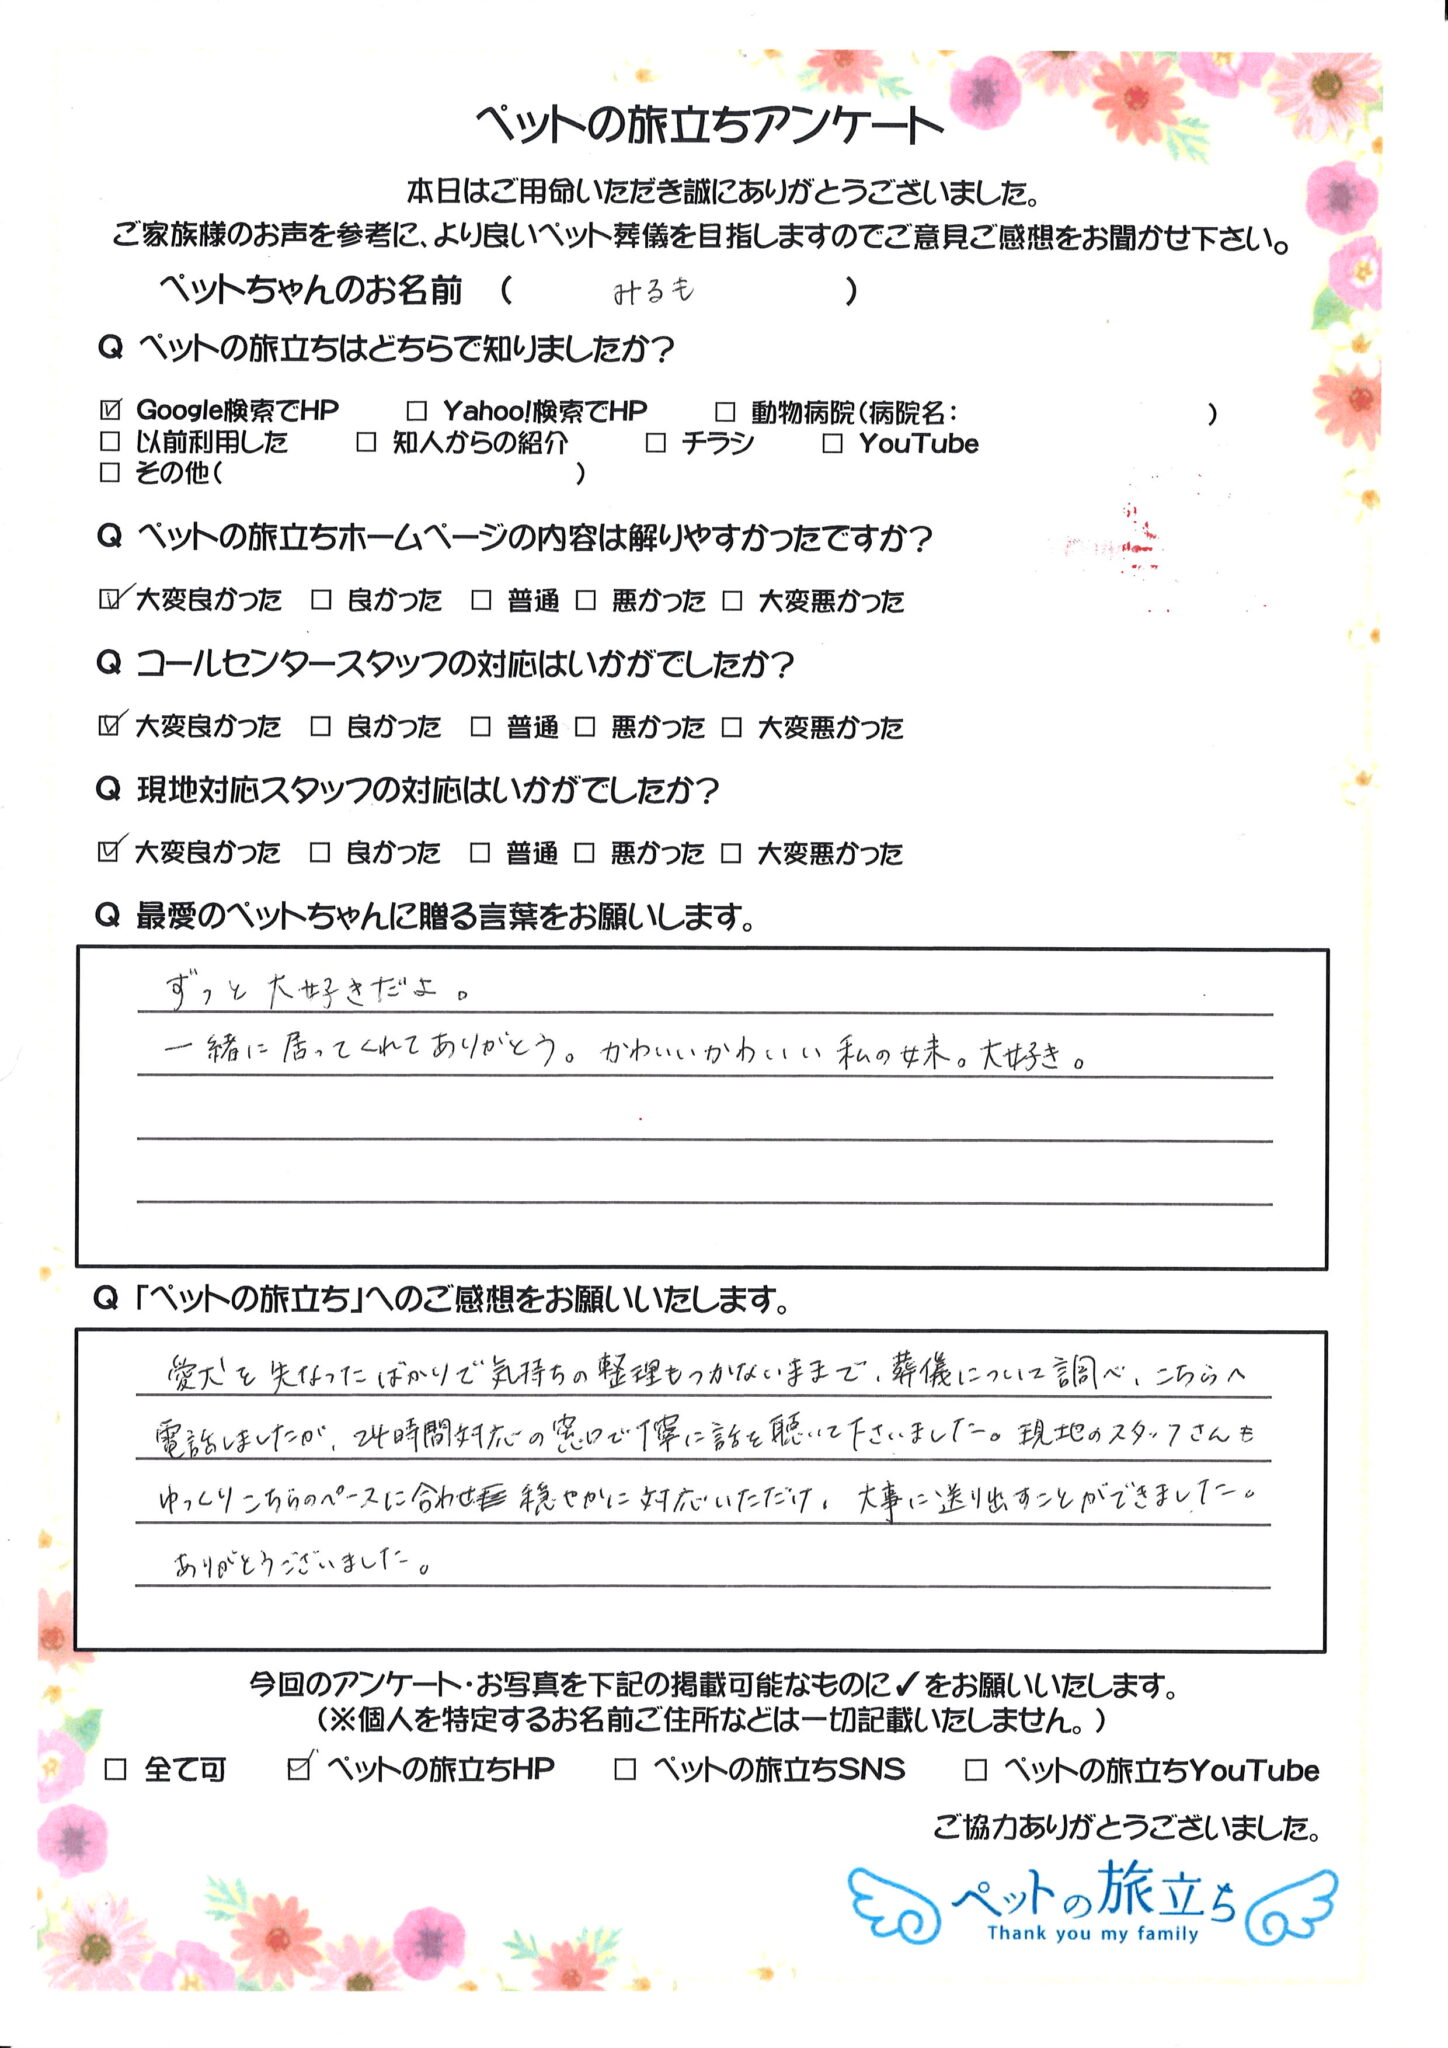 ペットの旅立ちアンケート
本日はご用命いただき誠にありがとうございました。
ご家族様のお声を参考に、より良いペット葬儀を目指しますのでご意見ご感想をお聞かせ下さい。
ペットちゃんのお名前 ( みるも )
Q ペットの旅立ちはどちらで知りましたか?
☑ Google検索でHP □ Yahoo!検索でHP □ 動物病院(病院名: )
□ 以前利用した □ 知人からの紹介 □ チラシ □ YouTube
□ その他( )
Q ペットの旅立ちホームページの内容は解りやすかったですか?
☑ 大変良かった □ 良かった □ 普通 □ 悪かった □ 大変悪かった
Q コールセンタースタッフの対応はいかがでしたか?
☑ 大変良かった □ 良かった □ 普通 □ 悪かった □ 大変悪かった
Q 現地対応スタッフの対応はいかがでしたか?
☑ 大変良かった □ 良かった □ 普通 □ 悪かった □ 大変悪かった
Q 最愛のペットちゃんに贈る言葉をお願いします。
ずっと大好きだよ。
一緒に居ってくれてありがとう。かわいいかわいい私の妹。大好き。
Q 「ペットの旅立ち」へのご感想をお願いいたします。
愛犬を失なったばかりで気持ちの整理もつかないままで、葬儀について調べ、こちらへ
電話しましたが、24時間対応の窓口で丁寧に話を聴いて下さいました。現地のスタッフさんも
ゆっくりこちらのペースに合わせ 穏やかに対応いただけ、大事に送り出すことができました。
ありがとうございました。
今回のアンケート・お写真を下記の掲載可能なものに✓をお願いいたします。
(※個人を特定するお名前ご住所などは一切記載いたしません。)
□ 全て可 ☑ ペットの旅立ちHP □ ペットの旅立ちSNS □ ペットの旅立ちYouTube
ご協力ありがとうございました。
ペットの旅立ち
Thank you my family